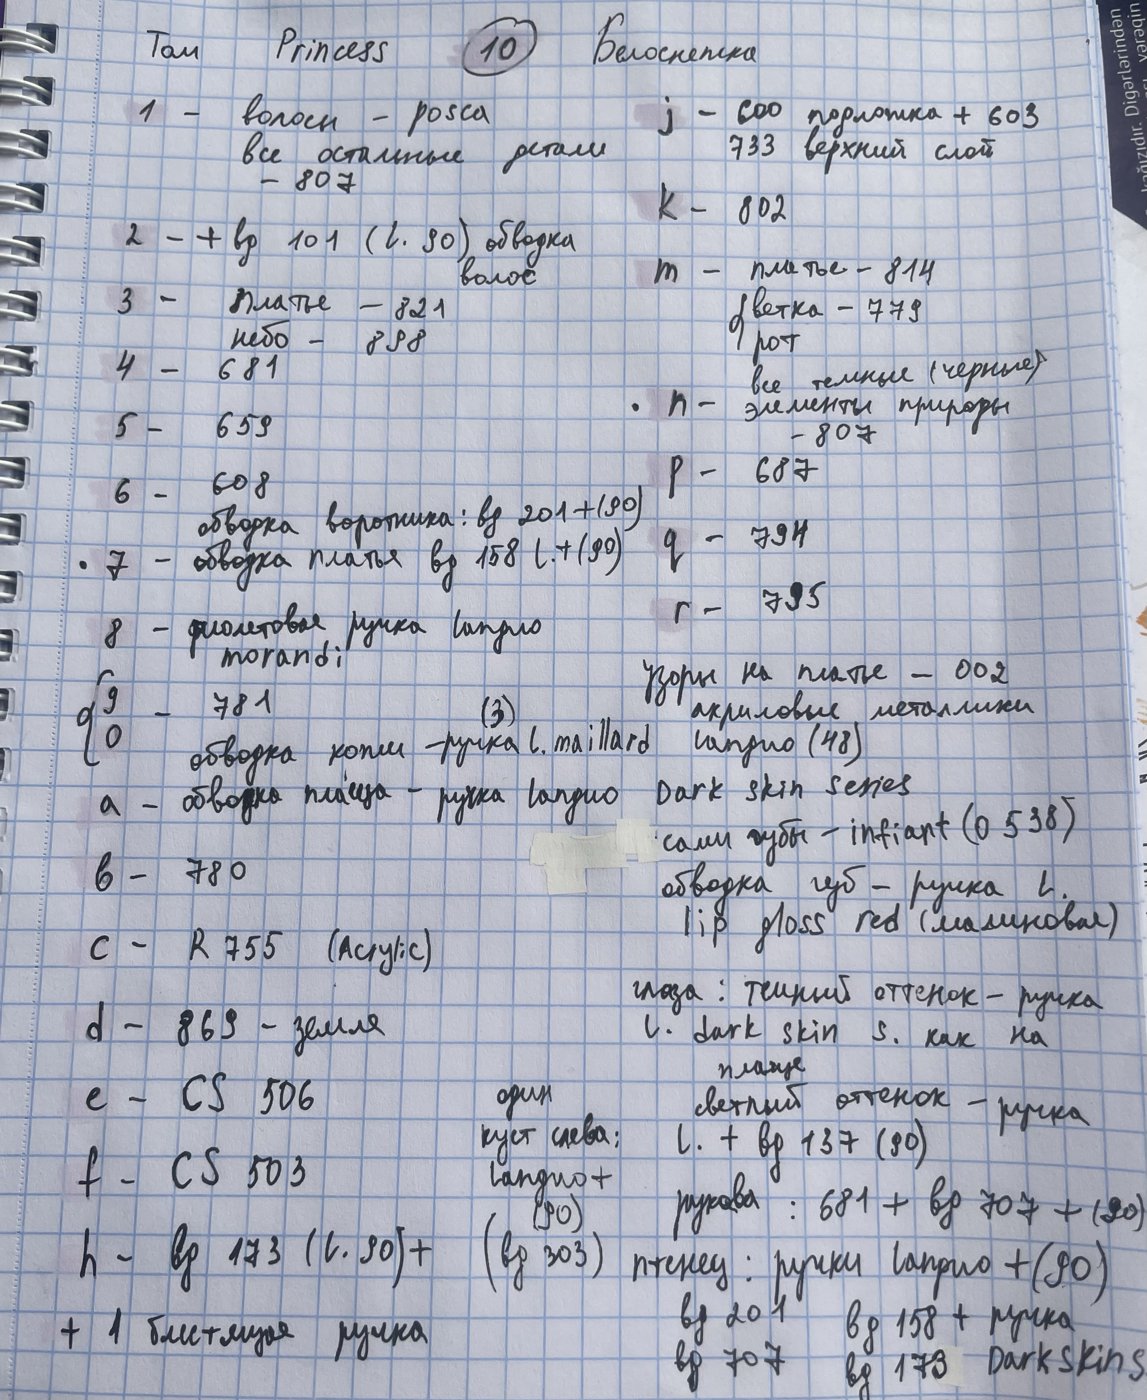 Том Princess 10 Белоснежка
1 - волосы - posca
все остальные детали
- 807
2 - + bg 101 (L. 90) обводка
волос
3 - платье - 821
небо - 898
4 - 681
5 - 659
6 - 608
обводка воротника: bg 201 + (90)
• 7 - обводка платья bg 158 L. + (90)
8 - фиолетовая ручка languo
morandi
{ 9
0 - 781
обводка кожи - ручка L. maillard (3)
a - обводка плаща - ручка languo Dark skin series
b - 780
c - R 755 (Acrylic)
d - 869 - земля
e - CS 506
f - CS 503
h - bg 173 (L. 90) +
+ 1 блестящая ручка
один
куст слева:
languo +
(90)
(bg 303)
j - 600 подложка + 603
733 верхний слой
k - 802
m - платье - 814
{ ветка - 779
рот
все темные (черные)
• n - элементы природы
- 807
p - 687
q - 794
r - 795
узоры на платье - 002
акриловые металлики
languo (48)
сами губы - infiart (0 538)
обводка губ - ручка L.
lip gloss red (малиновая)
глаза: темный оттенок - ручка
L. dark skin s. как на
плаще
светлый оттенок - ручка
L. + bg 137 (90)
рукава: 681 + bg 707 + (90)
птенец: ручки languo + (90)
bg 201 bg 158 + ручка
bg 707 bg 173 Dark skin s
Digərlərindən